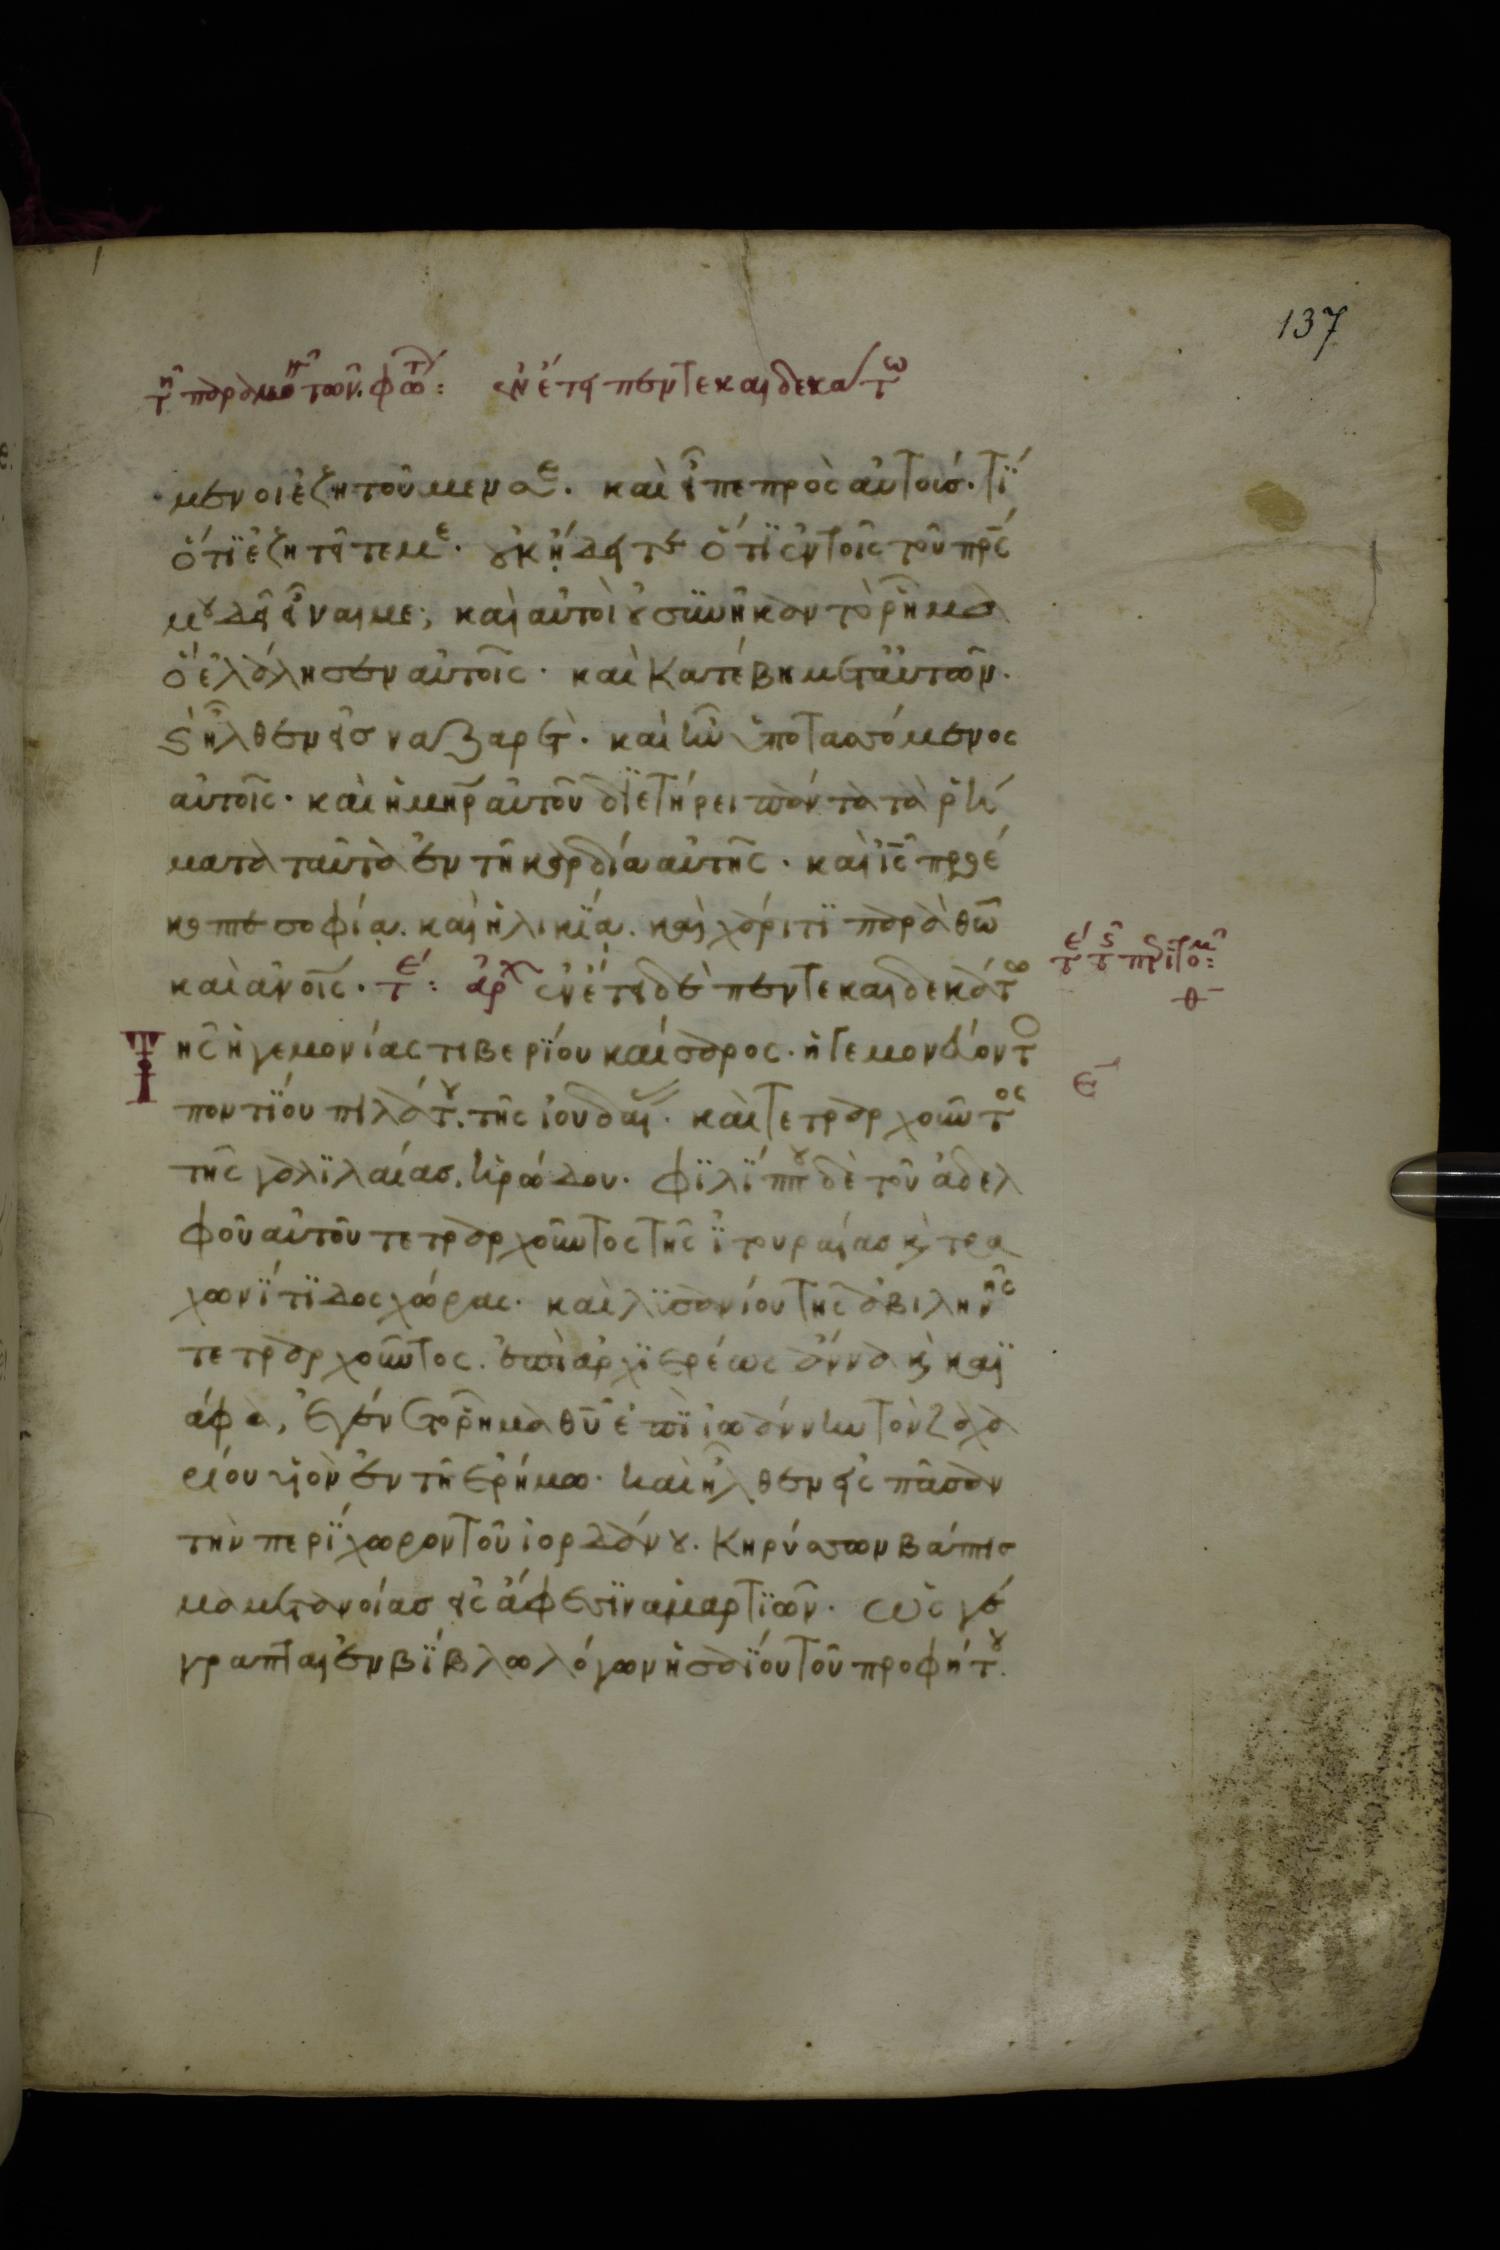 137
τη παραμο των φωτ: ἐν ἔτει πεντεκαιδεκάτω
μενοι ἐζητοῦμεν σε. καὶ εἶπε πρὸς αὐτοῖσ. τΐ
ὅτϊ ἐζητεῖτε με. οὐκ ἤδειτε ὅτϊ ἐν τοῖς τοῦ πρς
μου δεῖ εἶναι με; καὶ αὐτοὶ οὐ σϋνῆκαν τὸ ρῆμα
ὃ ἐλάλησεν αὐτοῖς. καὶ κατέβη μετ αὐτῶν.
καὶ ἦλθεν εἰσ ναζαρετ. καὶ ἦν ὑποτασσόμενος
αὐτοῖς. καὶ ἡ μηρ αὐτοῦ διετήρει πάντα τὰ ρή
ματα ταῦτα ἐν τῇ καρδία αὐτῆς. καὶ ις προέ
κοπτε σοφία. καὶ ἡλικϊα. καὶ χάριτϊ παρὰ θω
καὶ ἀνοις. τε: ἀρχ ἐν ἔτει δὲ πεντεκαιδεκάτω
ε τ ϛ τ
θ
Τῆς ἡγεμονίας τιβερϊου καίσαρος. ἡγεμονεύοντο
ε
ποντϊου πιλάτου. τῆς ἰουδαι. καὶ τετραρχοῦντος
τῆς γαλϊλαίασ, ἡρώδου. φϊλϊππου δὲ τοῦ ἀδελ
φοῦ αὐτοῦ τετραρχοῦντος τῆς ϊτουραίασ καὶ τρα
χωνϊτϊδος χώρας. καὶ λϊσανίου τῆς ἀβιληνῆς
τετραρχοῦντος. ἐπὶ ἀρχϊερέως ἄννα καὶ καϊ
άφα, ἐγένετο ρῆμα θυ ἐπϊ ἰωάννην τὸν ζαχα
ρίου υἱὸν ἐν τῇ ἐρήμω. καὶ ἦλθεν εἰς πᾶσαν
τὴν περϊχωρον τοῦ ἰορδάνου. κηρύσσων βάπτισ
μα μετανοίασ εἰς ἄφεσϊν ἁμαρτϊῶν. ὡς γέ
γραπται ἐν βϊβλω λόγων ἡσαϊου τοῦ προφήτου.